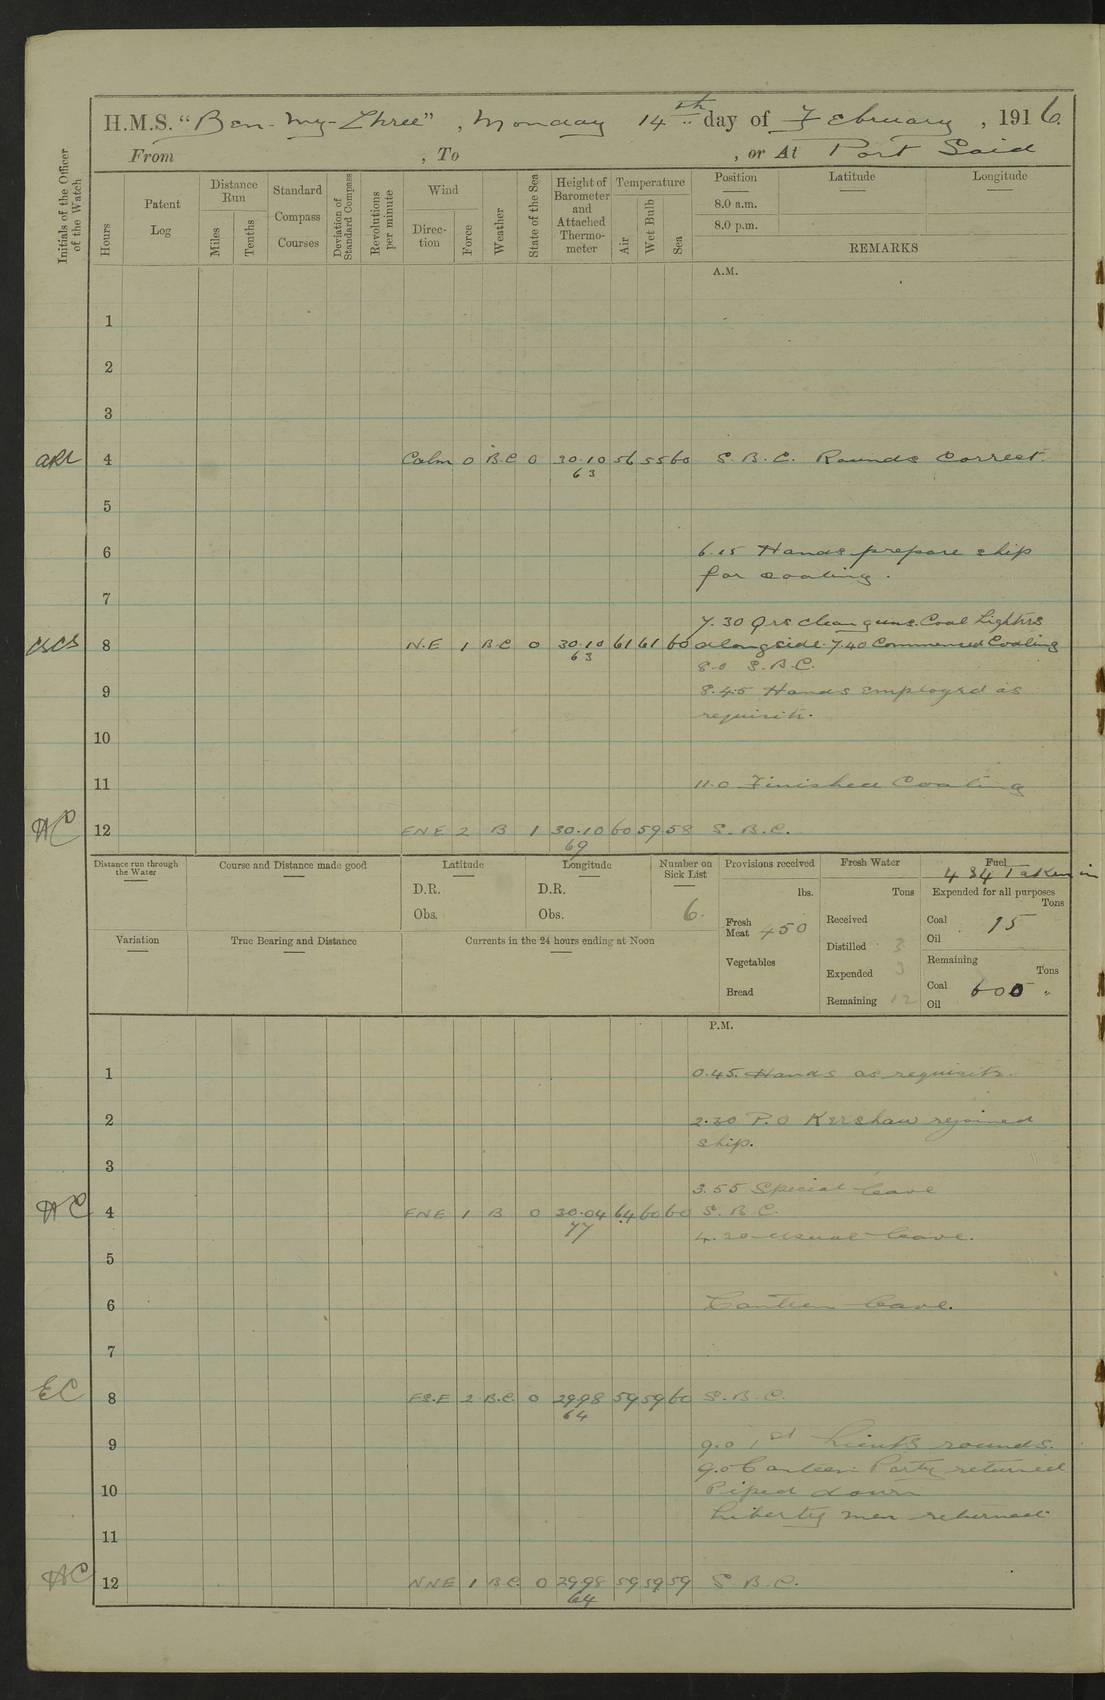 H.M.S. "Ben-My-Chree", Monday 14th day of February, 1916.
From , To , or At Port Said
Initials of the Officer of the Watch
Hours
Patent Log
Distance Run
Miles
Tenths
Standard Compass Courses
Deviation of Standard Compass
Revolutions per minute
Wind
Direction
Force
Weather
State of the Sea
Height of Barometer and Attached Thermometer
Temperature
Air
Wet Bulb
Sea
Position Latitude Longitude
8.0 a.m.
8.0 p.m.
REMARKS
A.M.
1
2
3
4 Calm 0 B.C 0 30.10 56 55 60 S.B.C. Rounds Correct.
63
5
6 6.15 Hands prepare ship
for coaling.
7
7.30 Qrs clean guns. Coal Lighters
CSCS 8 N.E 1 B C 0 30.10 61 61 60 alongside. 7.40 Commenced Coaling
63
8.0 S.B.C.
9 8.45 Hands employed as
requisite.
10
11 11.0 Finished Coaling
HC 12 ENE 2 B 1 30.10 60 59 58 S.B.C.
69
Distance run through the Water
Course and Distance made good
Latitude
D.R.
Obs.
Longitude
D.R.
Obs.
Number on Sick List
6.
Provisions received
lbs.
Fresh Meat 450
Vegetables
Bread
Fresh Water
Tons
Received
Distilled 3
Expended 3
Remaining 12
Fuel
434 Taken in
Expended for all purposes
Tons
Coal 15
Oil
Remaining
Tons
Coal 600 "
Oil
Variation
True Bearing and Distance
Currents in the 24 hours ending at Noon
P.M.
1 0.45. Hands as requisite.
2 2.30 P.O Kershaw rejoined
ship.
3
3.55 Special leave
HC 4 ENE 1 B 0 30.04 64 60 60 S.B.C.
77
4.20 usual leave.
5
6 Canteen leave.
7
EC 8 ES.E 2 B.C. 0 29.98 59 59 60 S.B.C.
64
9 9.0 1st Lieut's rounds.
9.0 Canteen Party returned
10 Piped down
Liberty men returned.
11
HC 12 NNE 1 B C. 0 29.98 59 59 59 S.B.C.
64